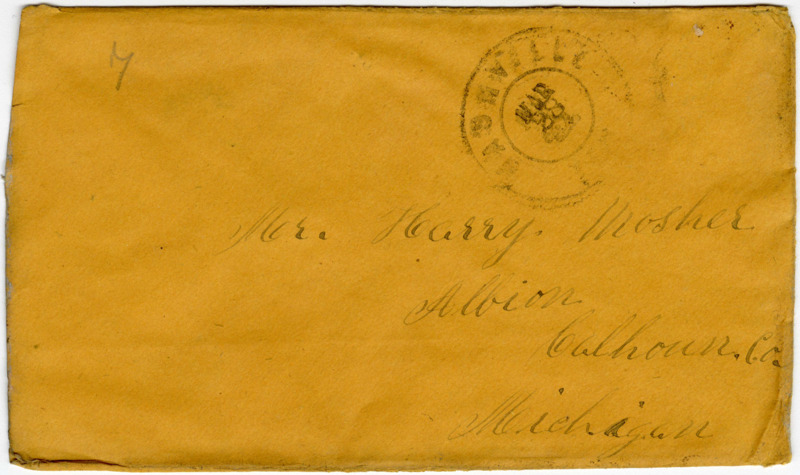 7
NASHVILLE
MAR
Mr. Harry. Mosher
Albion
Calhoun. Co.
Michigan